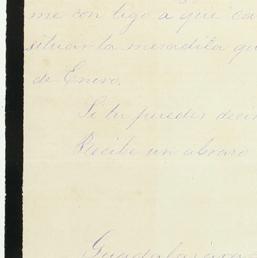 me con tigo a que
situar la mesadita qu
de Enero.
Si tu puedes deci
Recibe un abrazo
Guadalajara